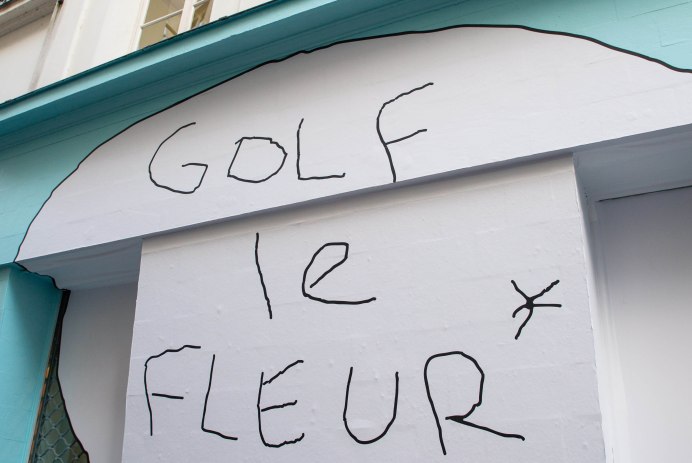 GOLF
le
FLEUR*